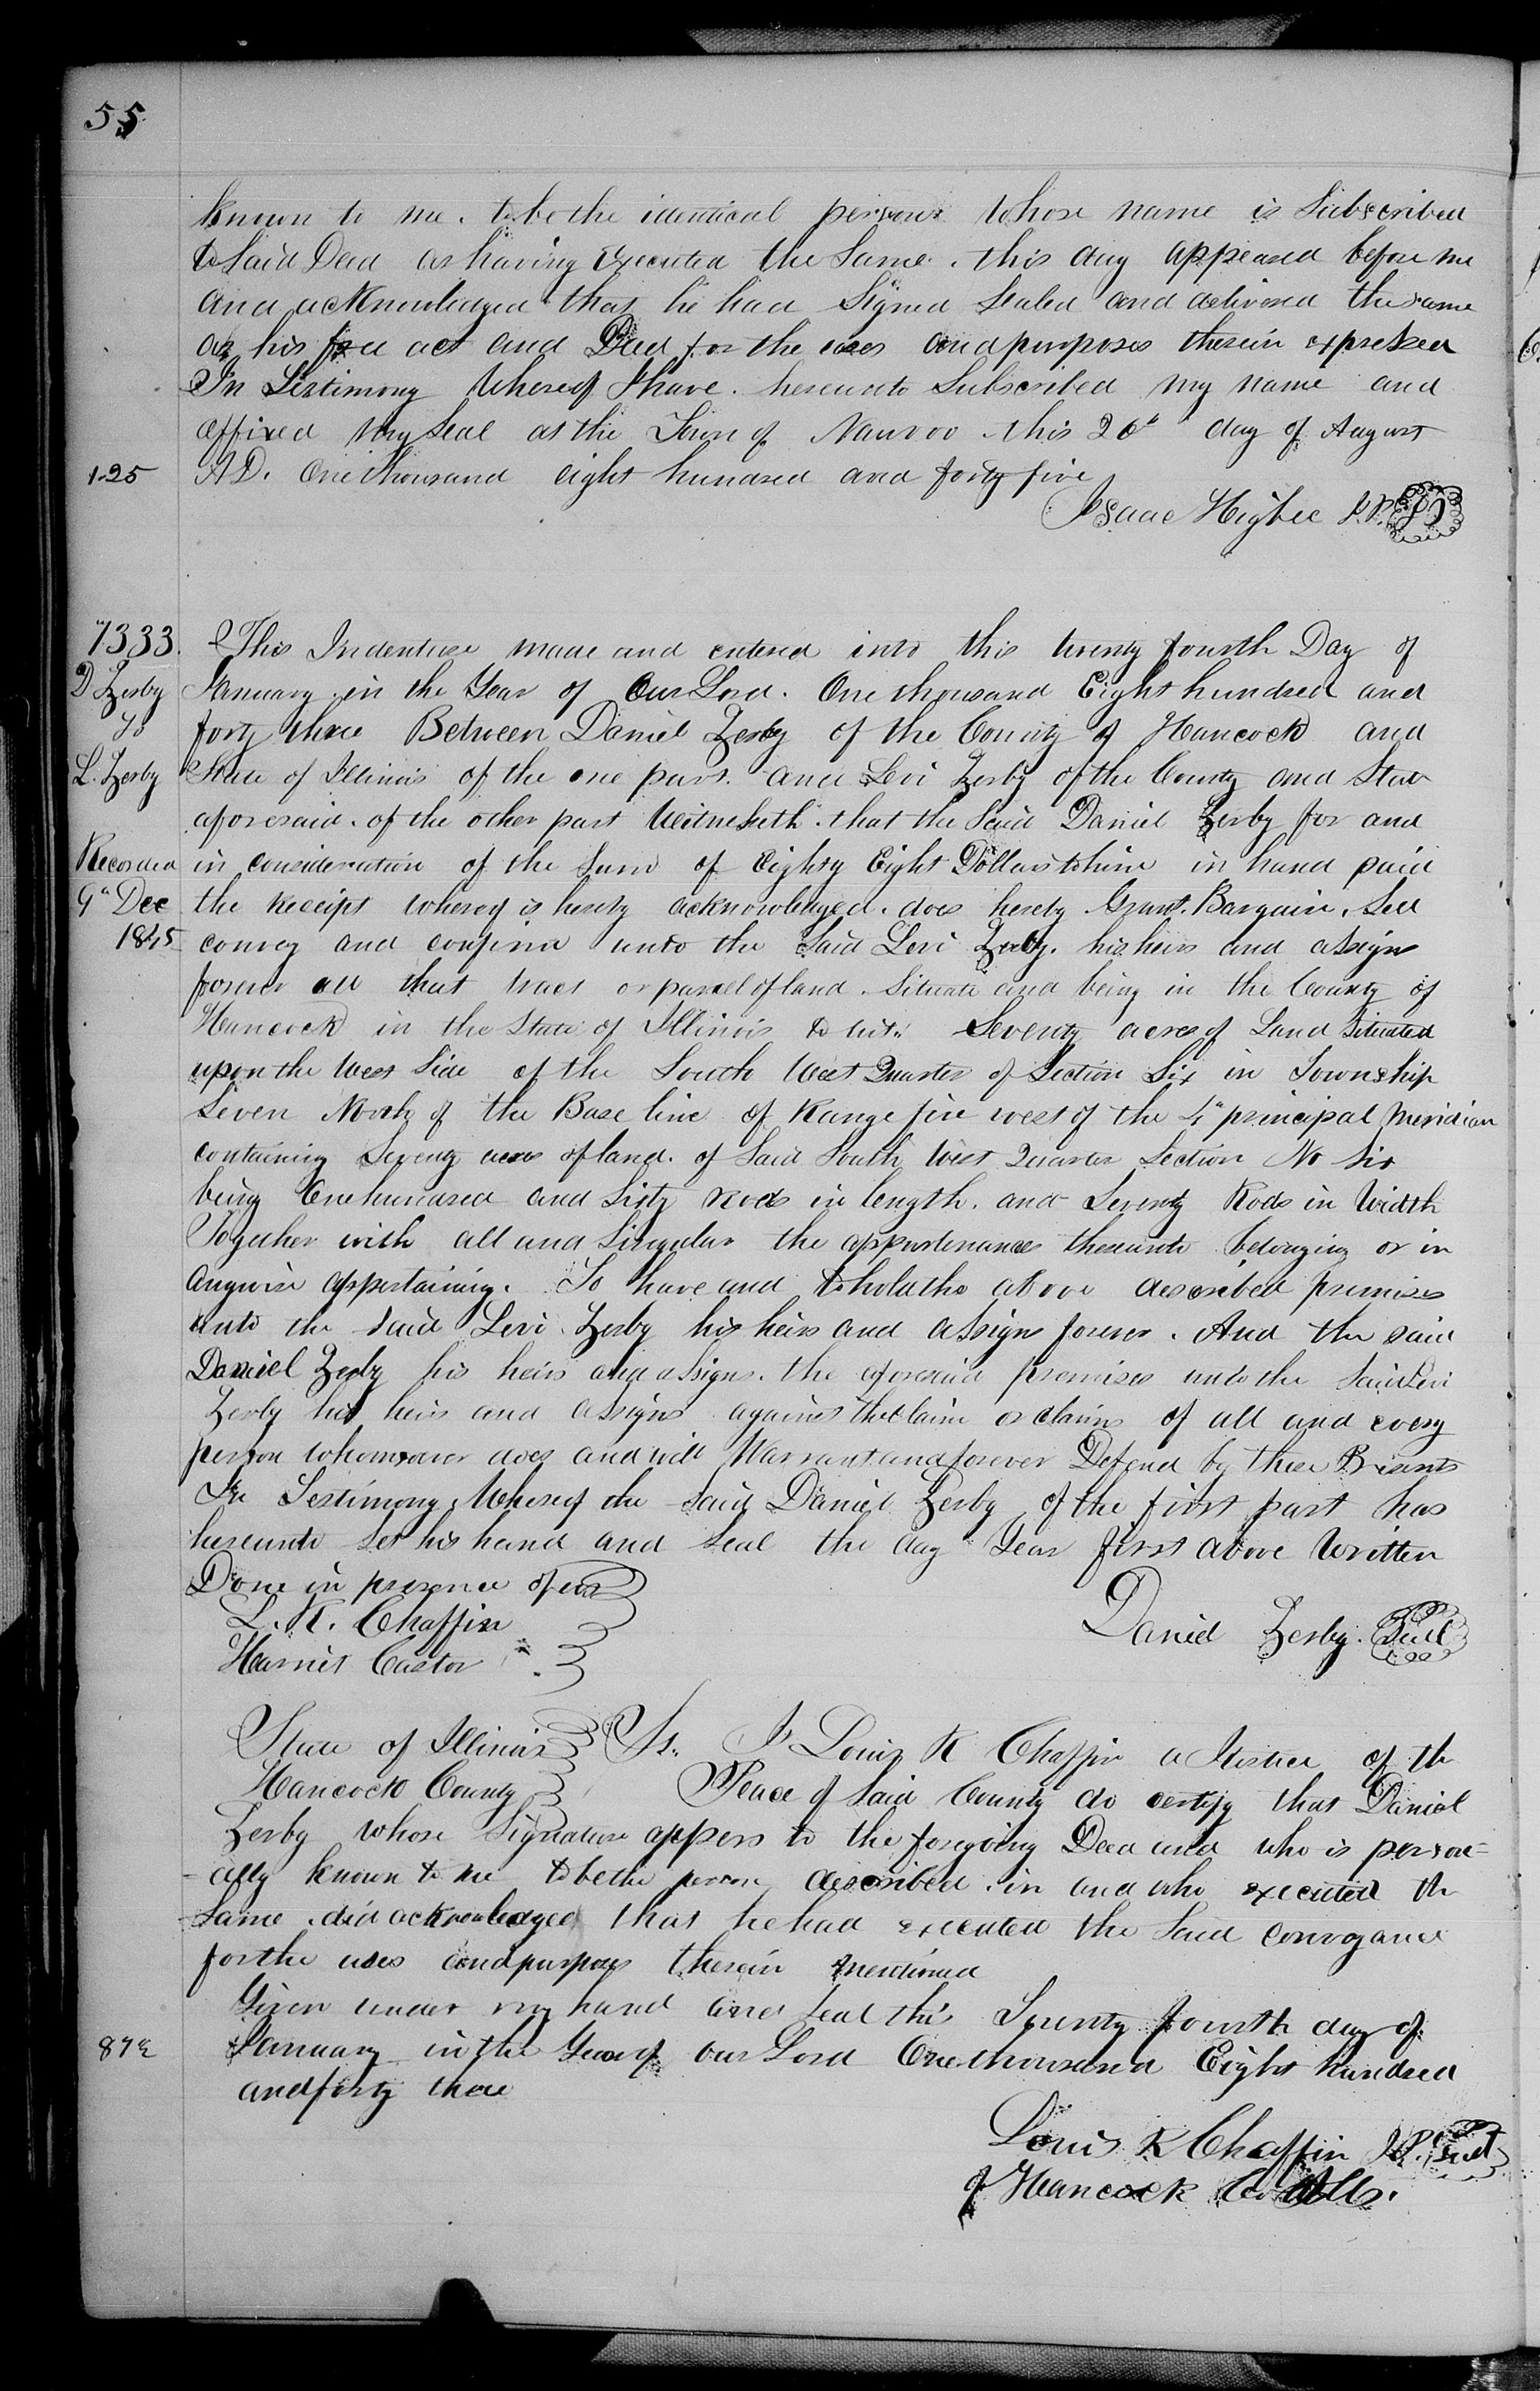 55
known to me. to be the identical person whose name is Subscribed
to Said Deed as having Executed the Same. this day appeared before me
and acknowledged that he had Signed Sealed and delivered the same
as his free act and Deed for the uses and purposes therein expressed
In Testimony Whereof I have. hereunto Subscribed my name and
affixed my Seal at the Town of Nauvoo this 26th day of August
1.25 A.D. One thousand eight hundred and forty five
Isaac Higbee J.P.
7333. This Indenture made and entered into this twenty fourth Day of
D Zerby January in the Year of Our Lord. One thousand Eight hundred and
To forty three Between Daniel Zerby of the County of Hancock and
L. Zerby State of Illinois of the one part. and Levi Zerby of the County and State
aforesaid. of the other part Witnesseth. that the Said Daniel Zerby for and
Recorded in consideration of the Sum of Eighty Eight Dollars to him in hand paid
9th Dec the Receipt whereof is hereby acknowledged. does hereby Grant. Bargain. Sell
1845 convey and confirm unto the Said Levi Zerby. his heirs and assigns
forever all that tract or parcel of land. Situate and being in the County of
Hancock in the State of Illinois to wit: Seventy acres of Land Situated
upon the West Side of the South West Quarter of Section Six in Township
Seven North of the Base line of Range five west of the 4th principal Meridian
containing Seventy acres of land. of Said South West Quarter Section No Six
being One hundred and Sixty Rods in length. and Seventy Rods in Width
Together with all and Singular the appurtenances thereunto belonging or in
anywise appertaining. To have and to hold the above described premises
unto the Said Levi Zerby his heirs and assigns forever. And the said
Daniel Zerby his heirs and assigns. the aforesaid premises unto the Said Levi
Zerby his heirs and assigns against the claim or claims of all and every
person whomsoever does and will Warrant and forever Defend by these Presents
In Testimony Whereof the Said Daniel Zerby of the first part has
hereunto Set his hand and Seal the day Year first above Written
Done in presence of us
L. K. Chaffin Daniel Zerby. Seal
Harriet Castor
State of Illinois Ss. I Louis K Chaffin a Justice of the
Hancock County Peace of Said County do certify that Daniel
Zerby whose Signature appears to the foregoing Deed and who is person-
ally known to me to be the person described in and who executed the
Same. did acknowledged that he had executed the Said conveyance
for the uses and purposes therein mentioned
Given under my hand and Seal this Twenty fourth day of
87½ January in the Year of our Lord One thousand Eight hundred
and forty three
Louis K Chaffin J.P. Seal
of Hancock Co Ills.